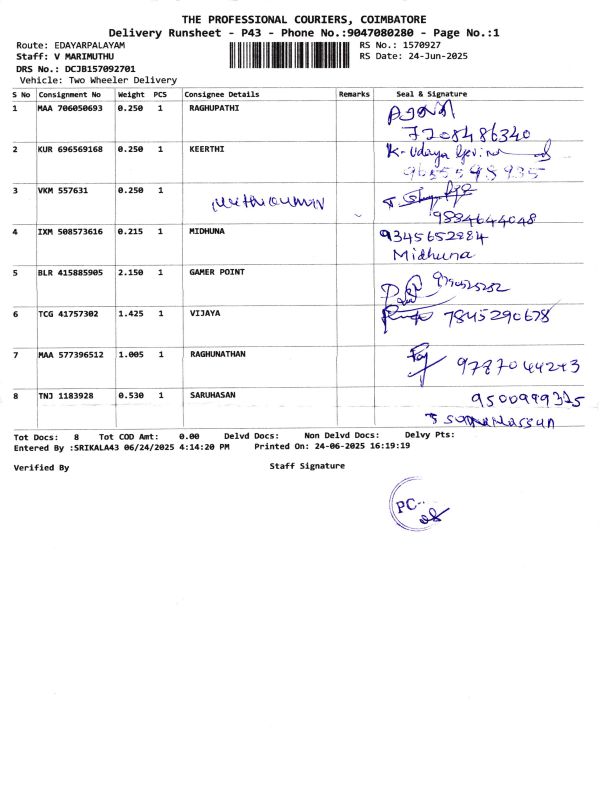 THE PROFESSIONAL COURIERS, COIMBATORE
Delivery Runsheet - P43 - Phone No.:9047080280 - Page No.:1
Route: EDAYARPALAYAM RS No.: 1570927
Staff: V MARIMUTHU RS Date: 24-Jun-2025
DRS No.: DCJB157092701
Vehicle: Two Wheeler Delivery
S No Consignment No Weight PCS Consignee Details Remarks Seal & Signature
1 MAA 706050693 0.250 1 RAGHUPATHI
7208486340
2 KUR 696569168 0.250 1 KEERTHI K. Udaya
9655598935
3 VKM 557631 0.250 1
9884644048
4 IXM 508573616 0.215 1 MIDHUNA 9345652884
Midhuna
5 BLR 415885905 2.150 1 GAMER POINT
6 TCG 41757302 1.425 1 VIJAYA 7845290678
7 MAA 577396512 1.005 1 RAGHUNATHAN 9787044243
8 TNJ 1183928 0.530 1 SARUHASAN 9500999315
Tot Docs: 8 Tot COD Amt: 0.00 Delvd Docs: Non Delvd Docs: Delvy Pts:
Entered By :SRIKALA43 06/24/2025 4:14:20 PM Printed On: 24-06-2025 16:19:19
Verified By Staff Signature
PC